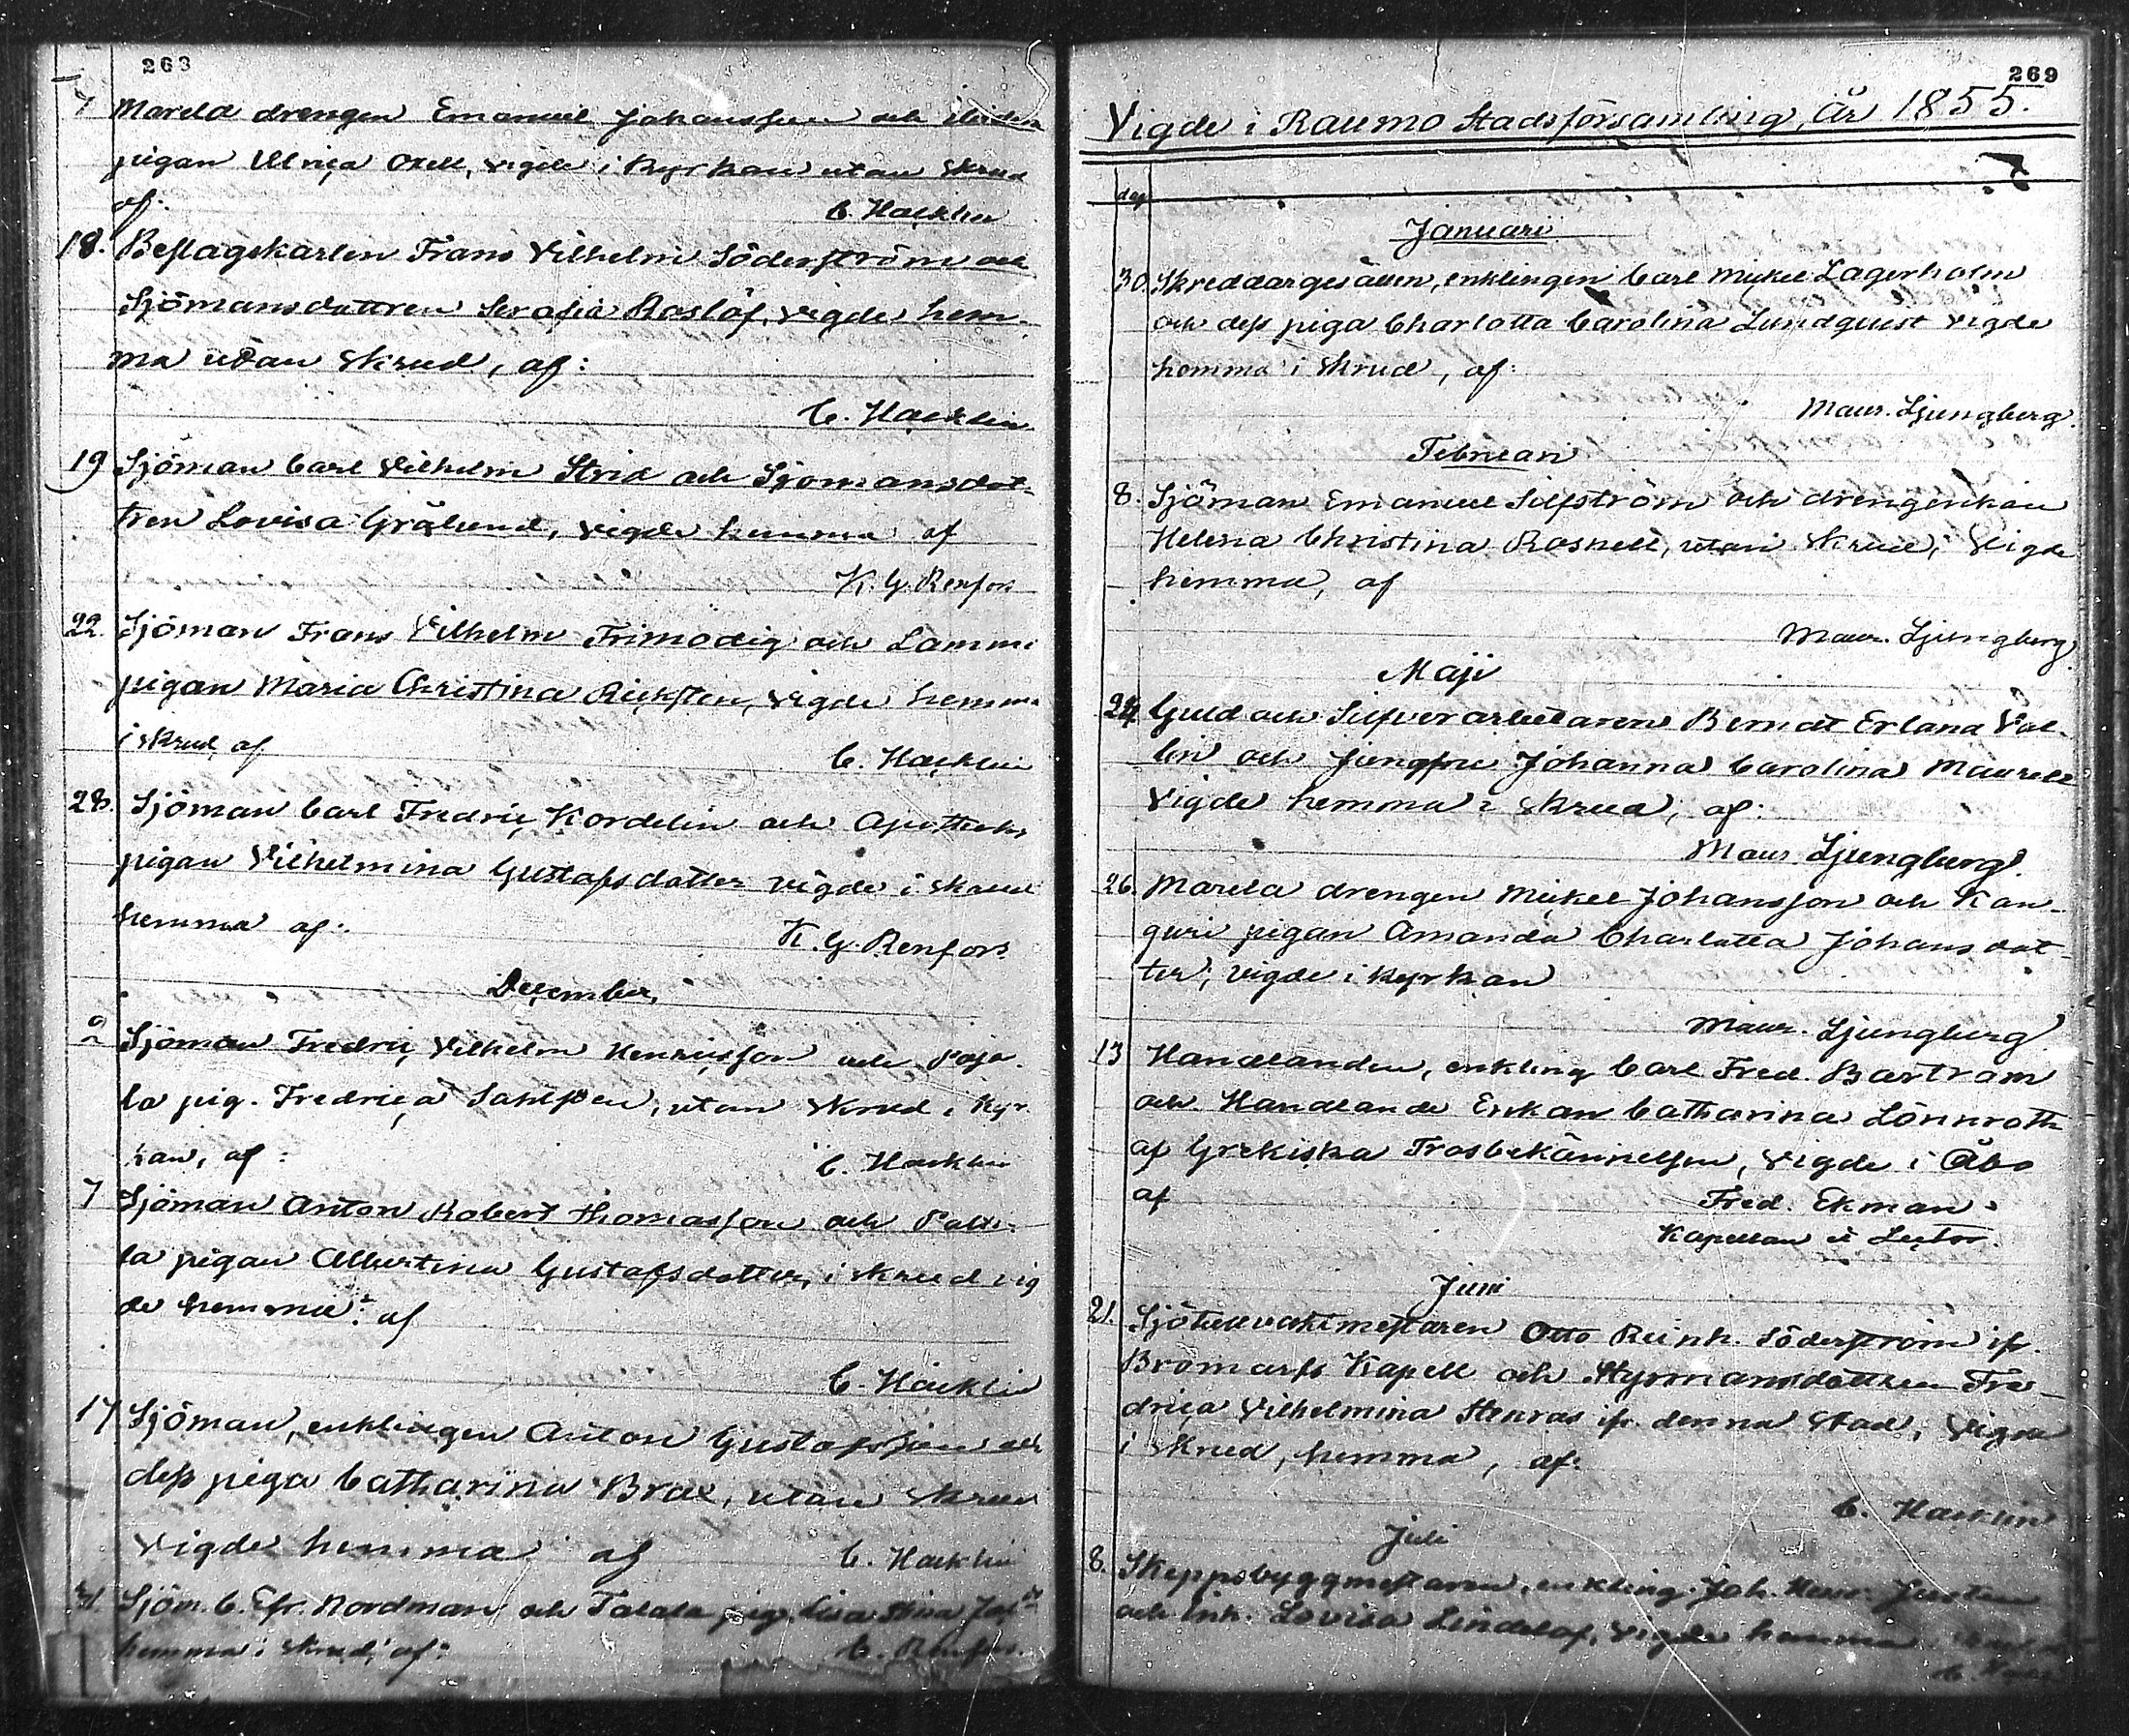 263
7 Marela drengen Emanuel Johansson och
pigan Ulrica Oxell, vigde i Kyrkan utan skrud
af: C. Hacklin
18. Beslagskarlen Frans Vilhelm Söderström och
Sjömansdottren Serafia Roslöf, vigde hem-
ma utan skrud, af:
C. Hacklin
19 Sjöman Carl Vilhelm Strid och Sjömansdot-
tren Lovisa Grölund, vigde hemma af
K. G. Renfors
22. Sjöman Frans Vilhelm Frimodig och Lammi
pigan Maria Christina Rickstén, vigde hemma
i skrud af C. Hacklin
28. Sjöman Carl Fredric Kordelin och Apotheks
pigan Vilhelmina Gustafsdotter vigde i skrud
hemma af: K. G. Renfors
December,
2 Sjöman Fredric Vilhelm Henricsson och
la pig. Fredrica Sahlstén, utan skrud i Kyr-
kan, af: C. Hacklin
7 Sjöman Anton Robert Thomasson och
la pigan Albertina Gustafsdotter, i skrud vig
de hemma: af
C. Hacklin
17 Sjöman, enklingen Anton Gustafsson och
dess piga Catharina Brax, utan skrud
vigde hemma af C. Hacklin
31. Sjöm. C. Efr. Nordman och Talala pig. Lisa Stina
hemma i skrud, af: C. Renfors.
269
Vigde i Raumo Stadsförsamling, År 1855.
dag
Januari
30. Skreddargesällen, enklingen Carl Mickel Lagerholm
och dess piga Charlotta Carolina Lundquist vigde
hemma i skrud, af:
Maur. Ljungberg.
Februari
8. Sjöman Emanuel Silfström och drengenkan
Helena Christina Rosnell, utan skrud, vigde
hemma, af
Maur. Ljungberg.
Maji
24 Guld och Silfverarbetaren Berndt Erland Val-
lin och Jungfru Johanna Carolina Maurell
vigde hemma i skrud, af:
Maur. Ljungberg.
26. Marela drengen Mickel Johansson och Kan-
guri pigan Amanda Charlotta Johansdot-
ter, vigde i Kyrkan
Maur. Ljungberg
13 Handlanden, enkling Carl Fred. Bartram
och Handlande Enkan Catharina Lönnroth
af Grekiska Trosbekännelsen, vigde i Åbo
af Fred. Ekman
Kapellan et Lector.
Juni
21. Sjötullvaktmestaren Otto Reinh. Söderström ifr.
Bromarfs Kapell och Styrmansdottren Fre-
drica Vilhelmina Stenros ifr. denna stad, vigde
i skrud, hemma, af:
C. Hacklin
Juli
8. Skeppsbyggmestaren, enkling. Joh. Henr. Justén
och Enk. Lovisa Lindelöf, vigde hemma